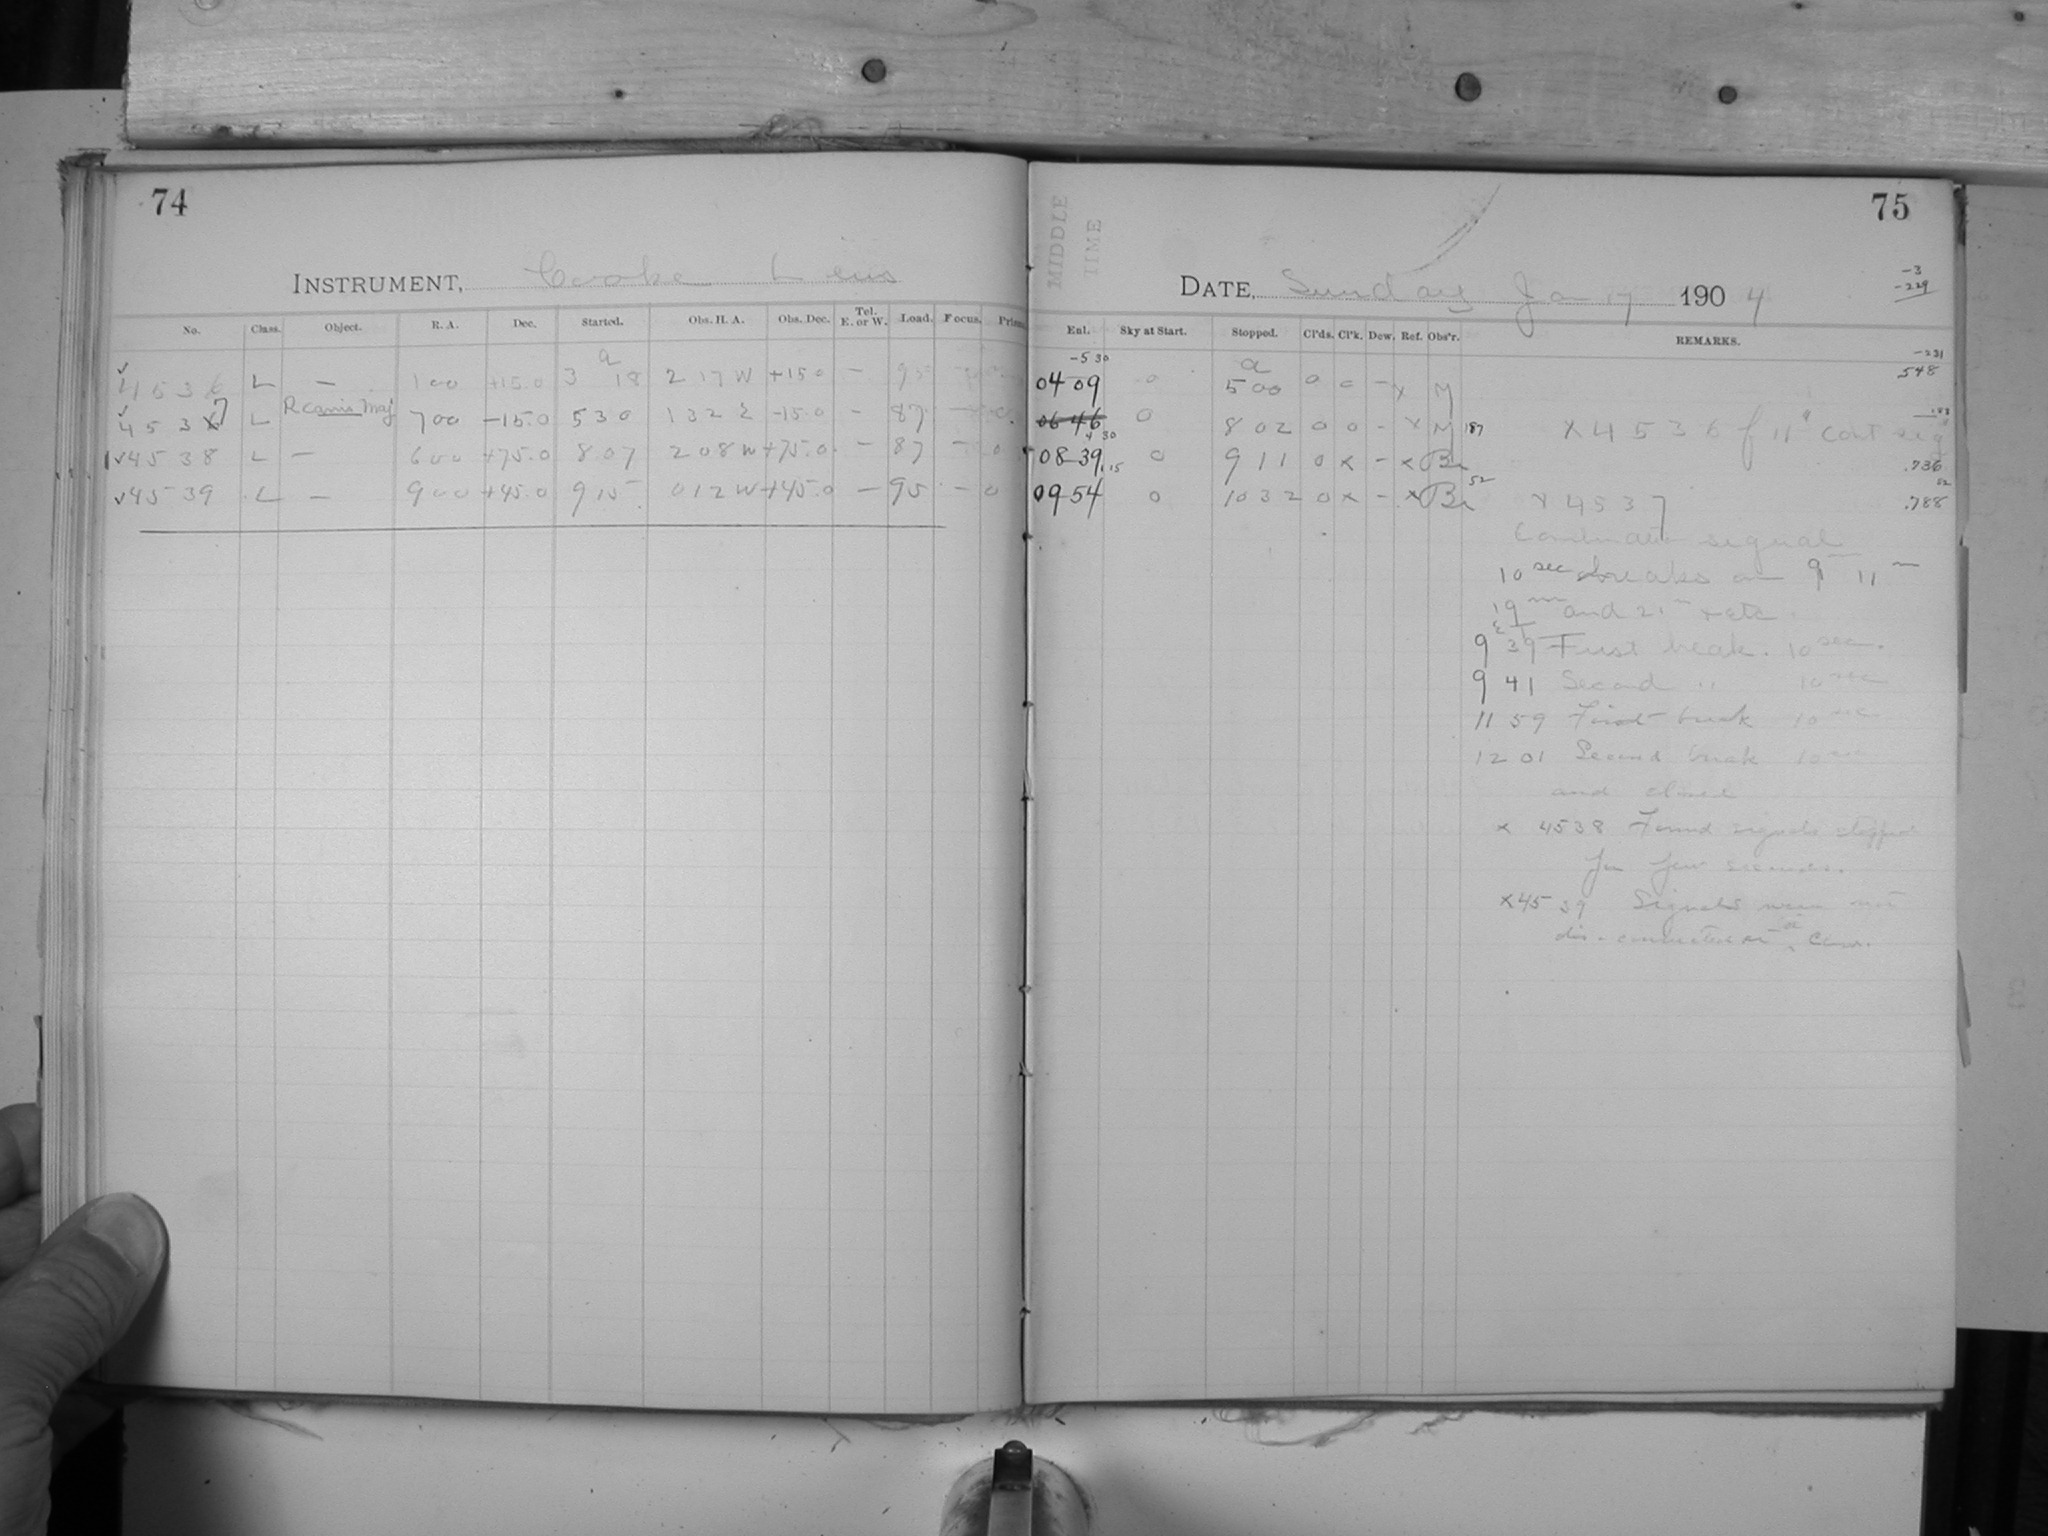 74
INSTRUMENT, Cooke Lens
No. Class. Object. R. A. Dec. Started. Obs. H. A. Obs. Dec. Tel. E. or W. Load. Focus. Prism
a
4536 L — 1 00 +15.0 3 18 2 17 W +15.0 — 95
4537 L R Canis Maj 7 00 -15.0 5 30 1 32 E -15.0 - 87 —
4538 L — 6 00 +75.0 8 07 2 08 W +75.0 — 87 — 0
4539 L — 9 00 +45.0 9 15 0 12 W +45.0 — 95 — 0
75
MIDDLE
TIME
DATE, Sunday Jan 17 1904
-3
-229
Enl. Sky at Start. Stopped. Cl'ds. Cl'k. Dew. Ref. Obs'r. REMARKS.
-5 30 a -231
04 09 0 5 00 0 0 - x M 548
06 46 0 8 02 0 0 - x M 187 x 4536 f 11" cont sig
08 39 0 9 11 0 x - x Br .736
09 54 0 10 32 0 x - x Br 52 x 4537 .788
signal
10 sec breaks on 9 11 m
19 m and 21 m
9 39 First break. 10 sec.
9 41 Second " 10 sec
11 59 First break 10 sec
12 01 Second break 10 sec
and closed
x 4538 Found signals stopped
for few seconds.
x 4539 Signals were not
dis-connected